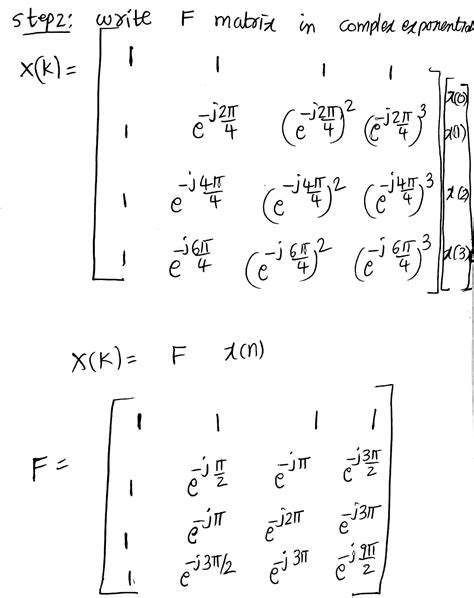 step2: write F matrix in complex exponential
X(K) = [ 1 1 1 1 ] [ x(0) ]
1 e^{-j2π/4} (e^{-j2π/4})^2 (e^{-j2π/4})^3 x(1)
1 e^{-j4π/4} (e^{-j4π/4})^2 (e^{-j4π/4})^3 x(2)
1 e^{-j6π/4} (e^{-j6π/4})^2 (e^{-j6π/4})^3 x(3)
X(K) = F x(n)
F = [ 1 1 1 1 ]
1 e^{-jπ/2} e^{-jπ} e^{-j3π/2}
1 e^{-jπ} e^{-j2π} e^{-j3π}
1 e^{-j3π/2} e^{-j3π} e^{-j9π/2}